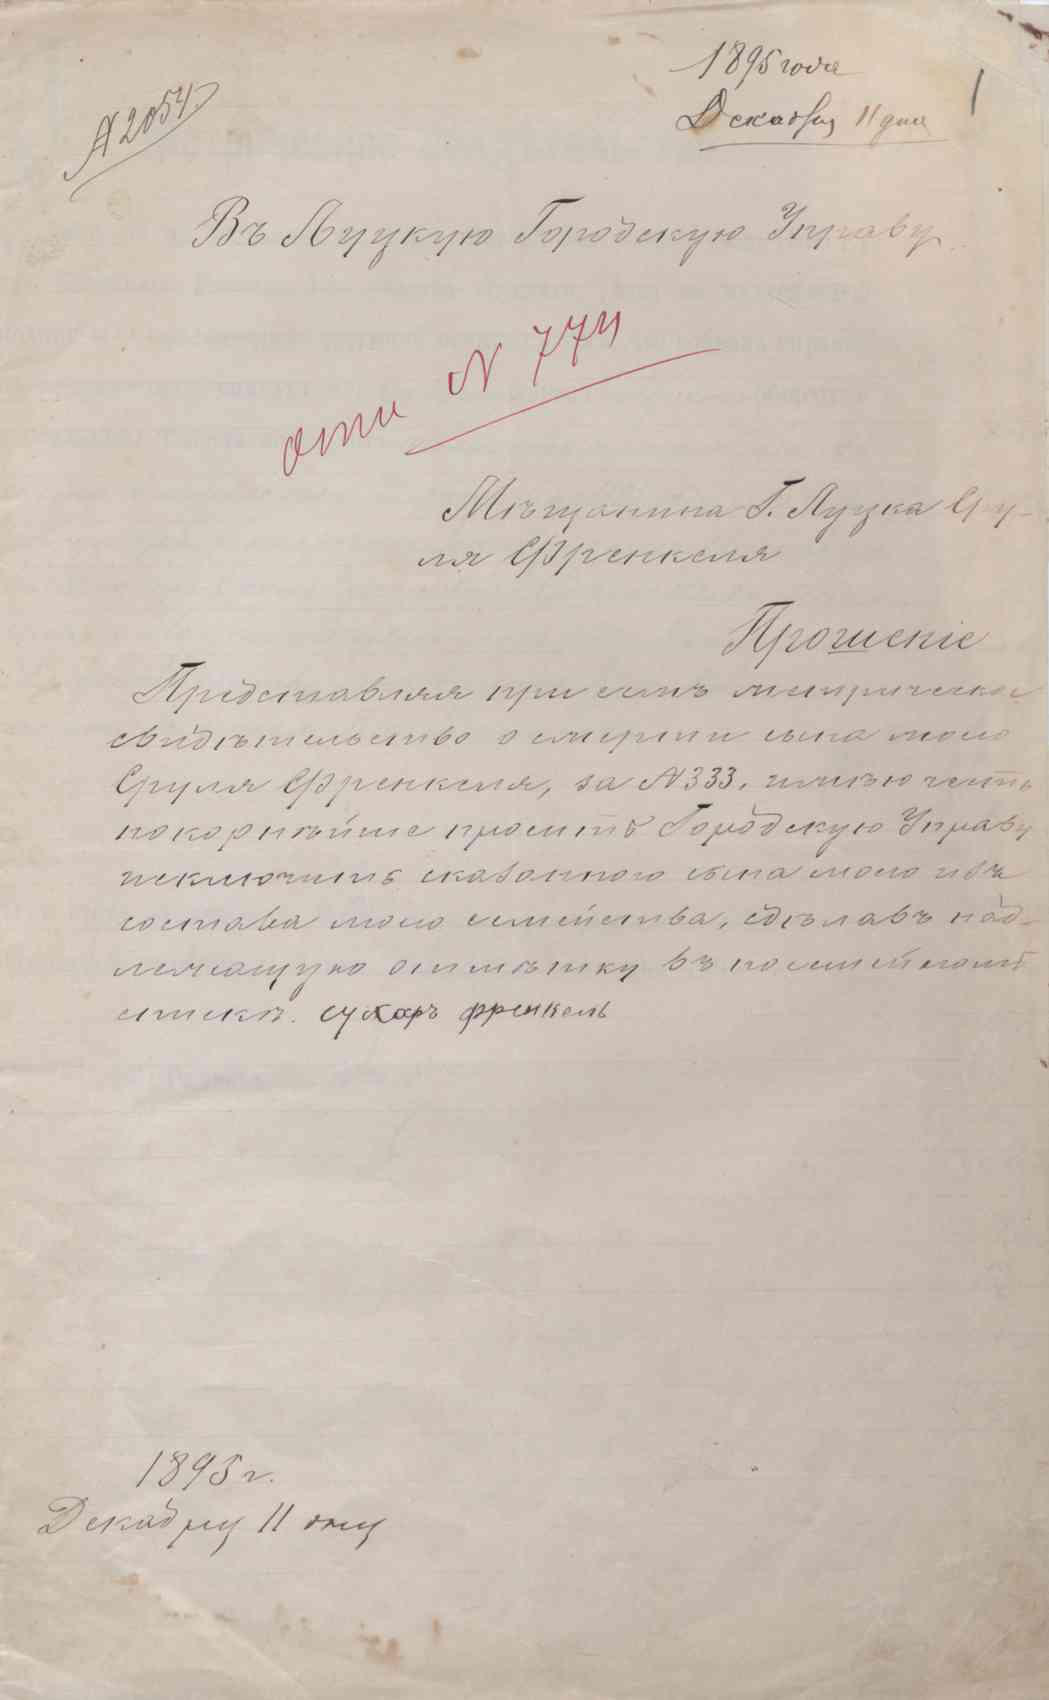 1895 года
1
Декабря 11 дня
№ 2054
Въ Луцкую Городскую Управу
отп № 774
Мѣщанина Г. Луцка Сру-
ля Френкеля
Прошеніе
Представляя при семъ метрическое
свидѣтельство о смерти сына моего
Сруля Френкеля, за № 333. имѣю честь
покорнѣйше просить Городскую Управу
исключить сказанного сына моего изъ
состава моего семейства, сдѣлавъ над-
лежащую отмѣтку въ посемейномъ
спискѣ. сухаръ френкель
1895 г.
Декабря 11 дня